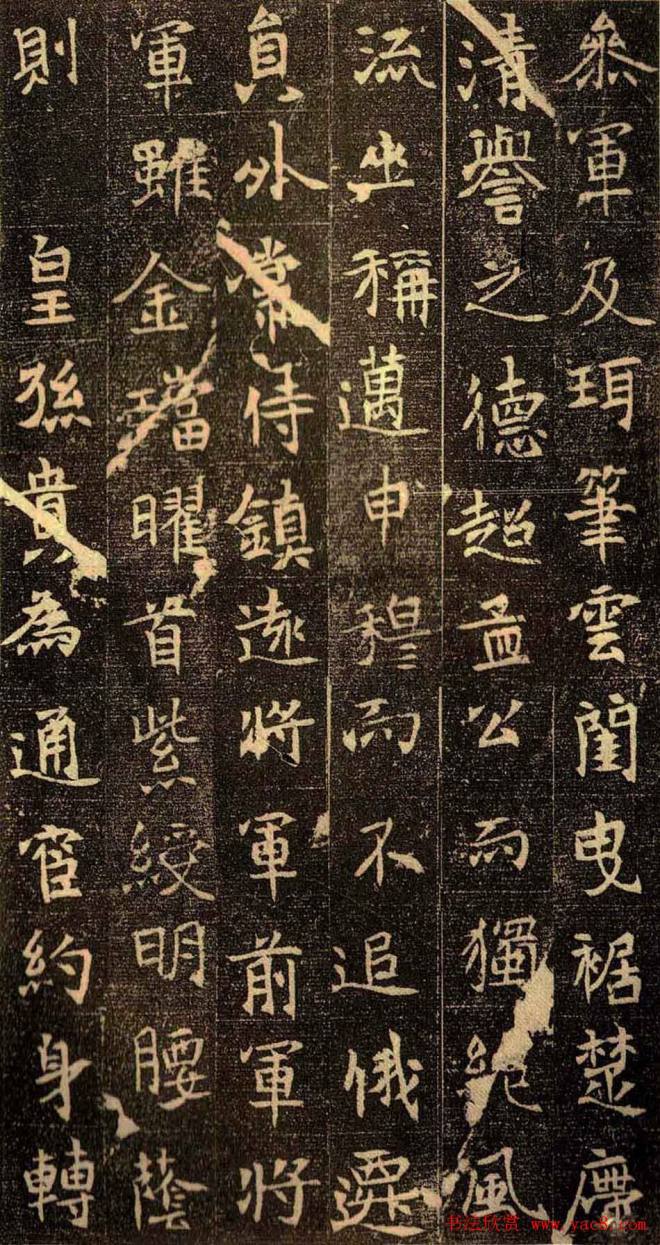 叅軍及珥筆雲閨曳裾楚席
清譽之德超孟公而獨絕風
流坐稱邁申穆而不追俄遷
員外常侍鎮遠將軍前軍將
軍雖金璫曜首紫綬明腰蔭
則 皇孫貴為通官約身轉
书法欣赏 www.yac8.com